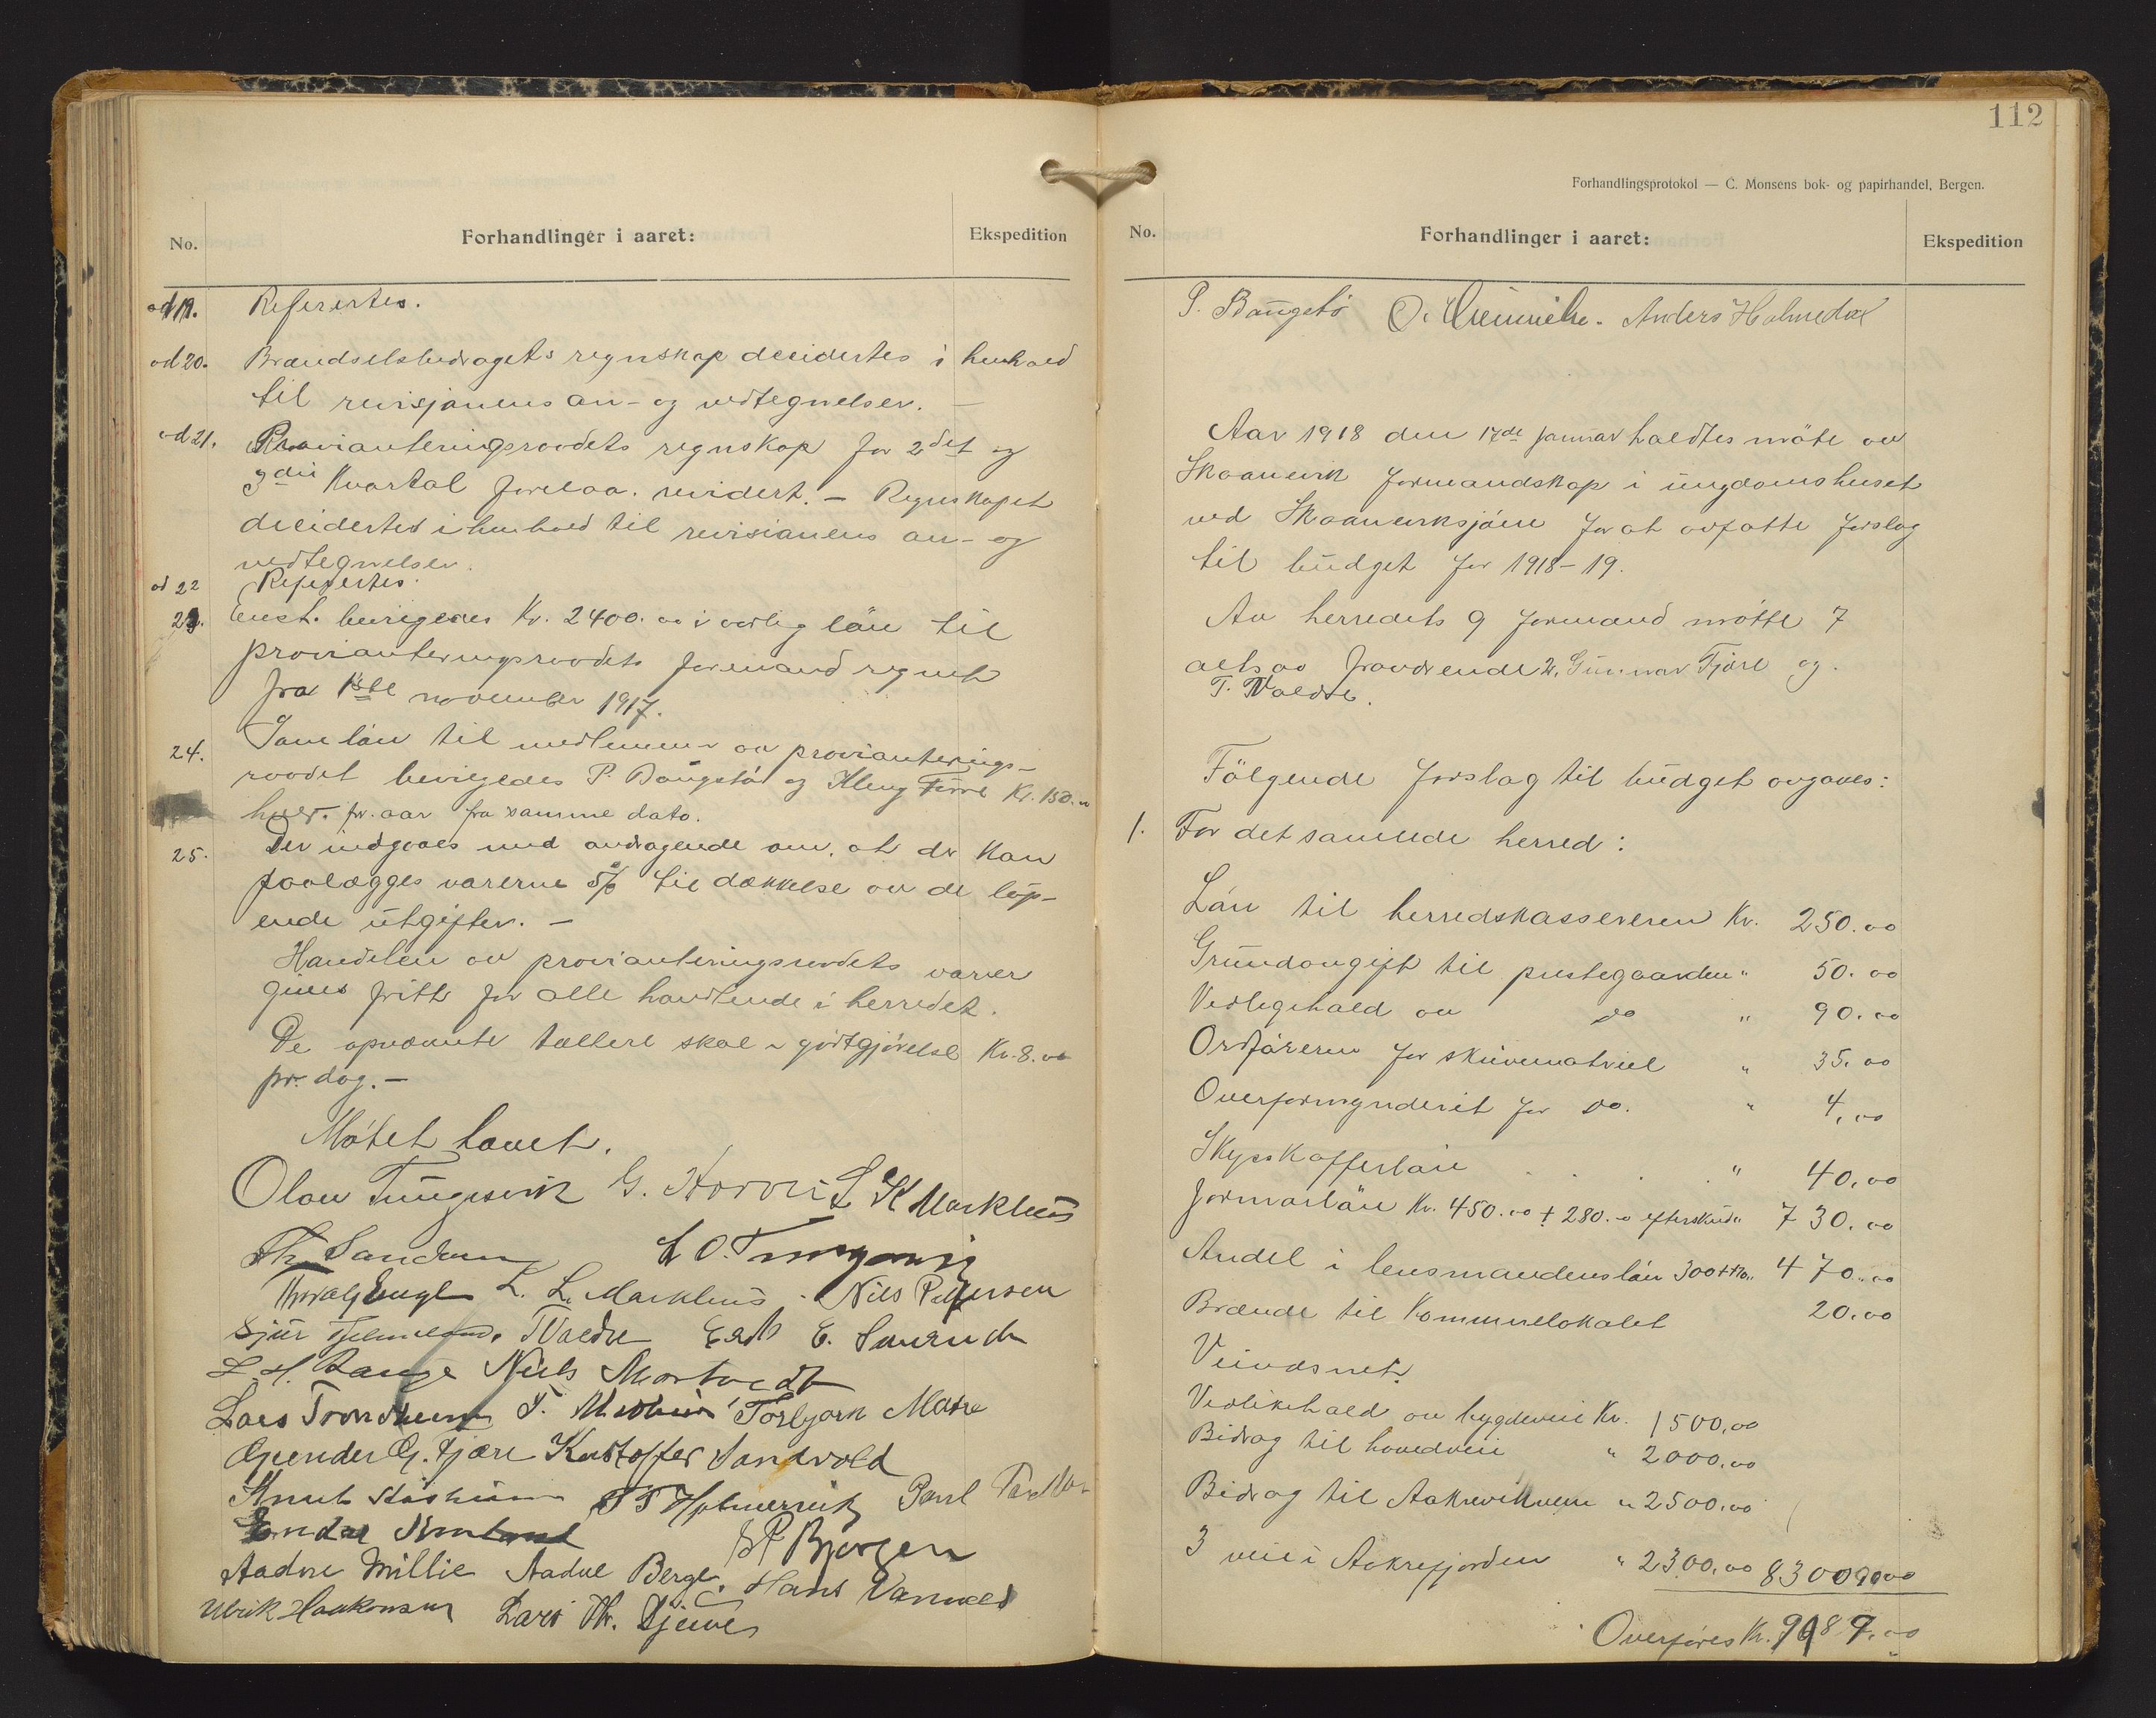 No.
Forhandlinger i aaret:
Ekspedition
ad 19. Refereertes.
ad 20. Brændselsbidragets regnskap decidertes i henhold
til revisjonens an- og vedtegnelser. —
ad 21. Provianteringsraadets regnskap for 2det og
3die Kvartal forelaa revidert. — Regnskapet
decidertes i henhold til revisionens an- og
vedtegnelser.
ad 22 Refereertes.
23. Enst. bevigedes Kr. 2400.00 i aarlig løn til
provianteringsraadets formand regnet
fra 1ste november 1917.
24. Som løn til medlemmer av provianterings-
raadet bevigedes P. Baugstø og Kleng Fjære Kr. 150.00
hver pr. aar fra samme dato.
25. Der indgaaes med andragende om, at der kan
paalægges varerne 5% til dækkelse av de løp-
ende utgifter. —
Handelen av provianteringsraadets varer
gives fritt for alle handlende i herredet.
De opnævnte tællere skal i godtgjørelse Kr. 8.00
pr. dag. —
Møtet hævet.
Olav Tungesvik G. Hovvi L K Markhus
Th. Sandem L O. Tungesvig
Thorvald Enge L. L. Markhus. Nils Pedersen
Sjur Fjelmeland. T Valdre Erik E. Saurud
L. H. Bauge Niels Mortvedt
Lars Trondheim T. Torbjørn Matre
Gunder G. Fjære Kristoffer Sandvold
Knut T T Holmersvik Paul
Endre
S P Bjørgen
Aadne Millie Aadne Berge. Hans Vannes
Ulrik Haakonsen Lars Th. Djuve
112
Forhandlingsprotokol — C. Monsens bok- og papirhandel, Bergen.
No.
Forhandlinger i aaret:
Ekspedition
P. Baugstø O. Anders Holmedal
Aar 1918 den 17de januar holdtes møte av
Skaanevik formandskap i ungdomshuset
ved Skaaneviksjøen for at avfatte forslag
til budget for 1918–19.
Av herredets 9 formænd møtte 7
altsaa fraværende 2, Gunnar Fjære og
T. Valdre.
Følgende forslag til budget avgaves:
1. For det samlede herred:
Løn til herredskassereren Kr. 250.00
Grundavgift til prestegaarden " 50.00
Vedligehold av do " 90.00
Ordføreren for skrivematriel " 35.00
Overformynderiet for do. " 4,00
Skysskafferløn " 40,00
Jormorløn Kr. 450.00 + 280.00 efterskud " 730.00
Andel i lensmandens løn 300+170 " 470.00
Brænde til Kommunelokalet 20.00
Veivæsnet.
Vedlikehold av bygdeveie Kr. 1500,00
Bidrag til hovedveie " 2000,00
Bidrag til Aakrevikveien " 2500,00
3 veie i Aakrefjorden " 2300,00 8300,00
Overføres Kr. 9989.00